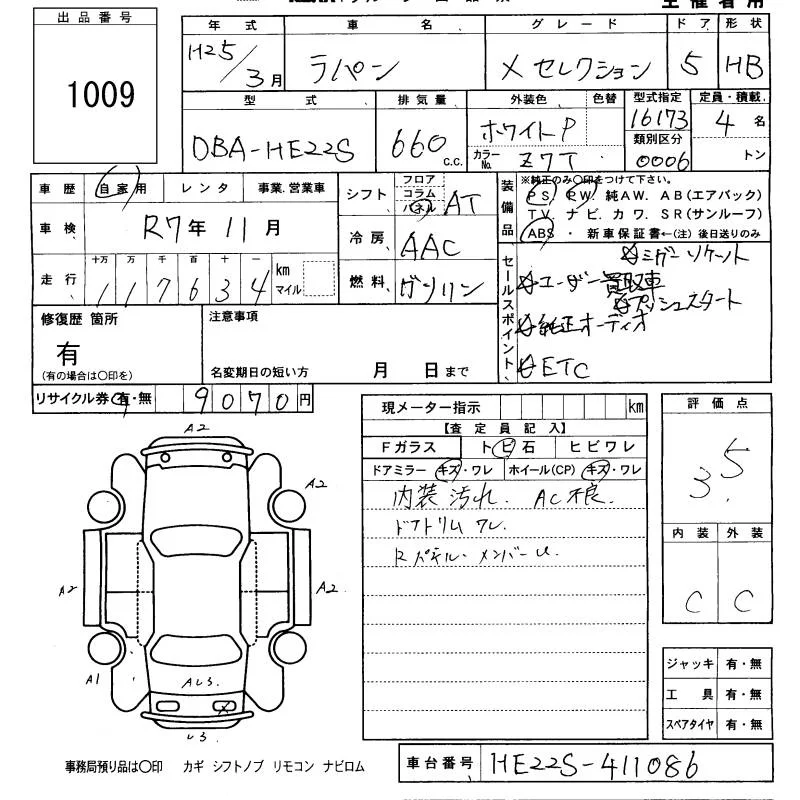 出品番号
1009
年式 車名 グレード ドア 形状
H25/3月 ラパン X セレクション 5 HB
型式 排気量 外装色 色替 型式指定 定員・積載
DBA-HE22S 660 c.c. ホワイトP 16173 4名
類別区分
カラーNo. Z7T 0006 トン
車歴 自家用 レンタ 事業.営業車
車検 R7年11月
走行 十万 万 千 百 十 一
117634 km マイル
シフト フロア コラム パネル AT
冷房 AAC
燃料 ガソリン
装備品
※純正のみ○印をつけて下さい。
PS. PW. 純AW. AB(エアバック)
TV. ナビ. カワ. SR(サンルーフ)
ABS ・ 新車保証書←(注)後日送りのみ
セールスポイント
☆ミラーソケット
☆ユーザー買取車
☆プッシュスタート
☆純正オーディオ
☆ETC
修復歴 箇所
有
(有の場合は○印を)
注意事項
名変期日の短い方 月 日まで
リサイクル券 有・無 9070円
現メーター指示 km
【査定員記入】
Fガラス トビ石 ヒビワレ
ドアミラー キズ・ワレ ホイール(CP) キズ・ワレ
内装汚れ. AC不良.
ドアトリムワレ.
Rパネル・メンバーU.
評価点
3.5
内装 外装
C C
A2
A2
A2
A2
A1
AU3.
X
U3.
ジャッキ 有・無
工具 有・無
スペアタイヤ 有・無
事務局預り品は○印 カギ シフトノブ リモコン ナビロム
車台番号 HE22S-411086